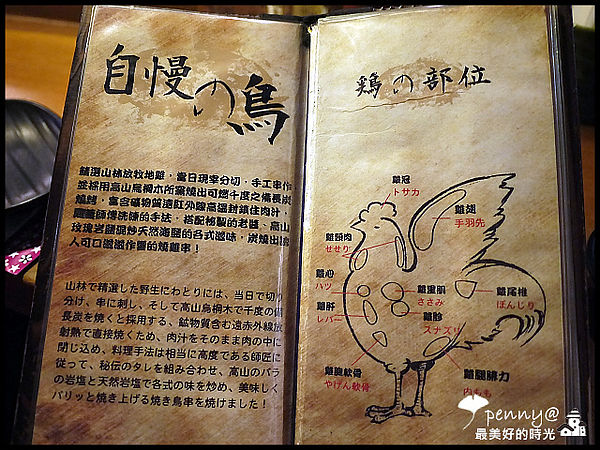 自慢の鳥
精選山林放牧地雞，當日現宰分切，手工串作
並採用高山烏桐木所窯燒出可燃千度之備長炭
燒烤，富含礦物質遠紅外線高溫封鎖住肉汁，
老醬，高山
玫瑰岩鹽混炒天然海鹽的各式滋味，炭燒出
人可口滋滋作響的燒雞串！
山林で精選した野生にわとりには、当日で切り
分け、串に刺し、そして高山烏桐木で千度の備
長炭を焼くと採用する、鉱物質含む遠赤外線放
射熱で直接焼くため、肉汁をそのまま肉の中に
閉じ込め、料理手法は相当に高度である師匠に
従って、秘伝のタレを組み合わせ、高山のバラ
の岩塩と天然岩塩で各式の味を炒め、美味しく
パリッと焼き上げる焼き鳥串を焼けました！
鶏の部位
雞冠
トサカ
雞翅
手羽先
雞頸肉
せせり
雞心
ハツ
雞里肌
ささみ
雞尾椎
ぼんじり
雞肝
レバー
雞胗
スナズリ
雞胸軟骨
やげん軟骨
雞腿腓力
内もも
penny@
最美好的時光